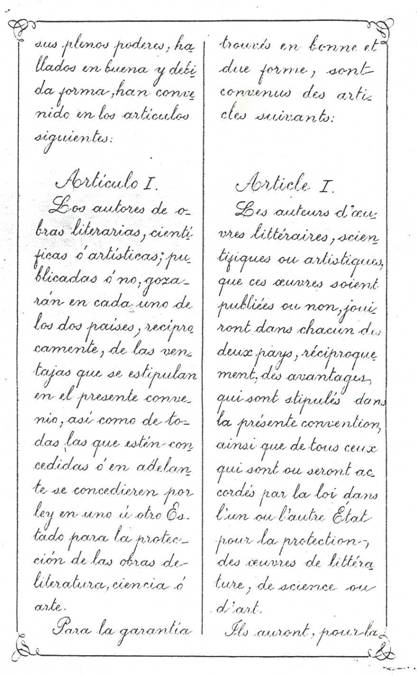 sus plenos poderes, ha
llados en buena y debi
da forma, han conve
nido en los artículos
siguientes:
Artículo I.
Los autores de o-
bras literarias, cientí
ficas ó artísticas; pu
blicadas ó no, goza-
rán en cada uno de
los dos países, recípro
camente, de las ven-
tajas que se estipulan
en el presente conve
nio, así como de to-
das las que estén con
cedidas ó en adelan-
te se concedieren por
ley en uno ú otro Es-
tado para la protec-
ción de las obras de
literatura, ciencia ó
arte.
Para la garantía
trouvés en bonne et
due forme, sont
convenus des arti-
cles suivants:
Article I.
Les auteurs d'œu-
vres littéraires, scien
tifiques ou artistiques,
que ces œuvres soient
publiées ou non, joui
ront dans chacun des
deux pays, réciproque
ment, des avantages,
qui sont stipulés dans
la présente convention,
ainsi que de tous ceux
qui sont ou seront ac-
cordés par la loi dans
l'un ou l'autre État
pour la protection,
des œuvres de littéra
ture, de science ou
d'art.
Ils auront, pour la